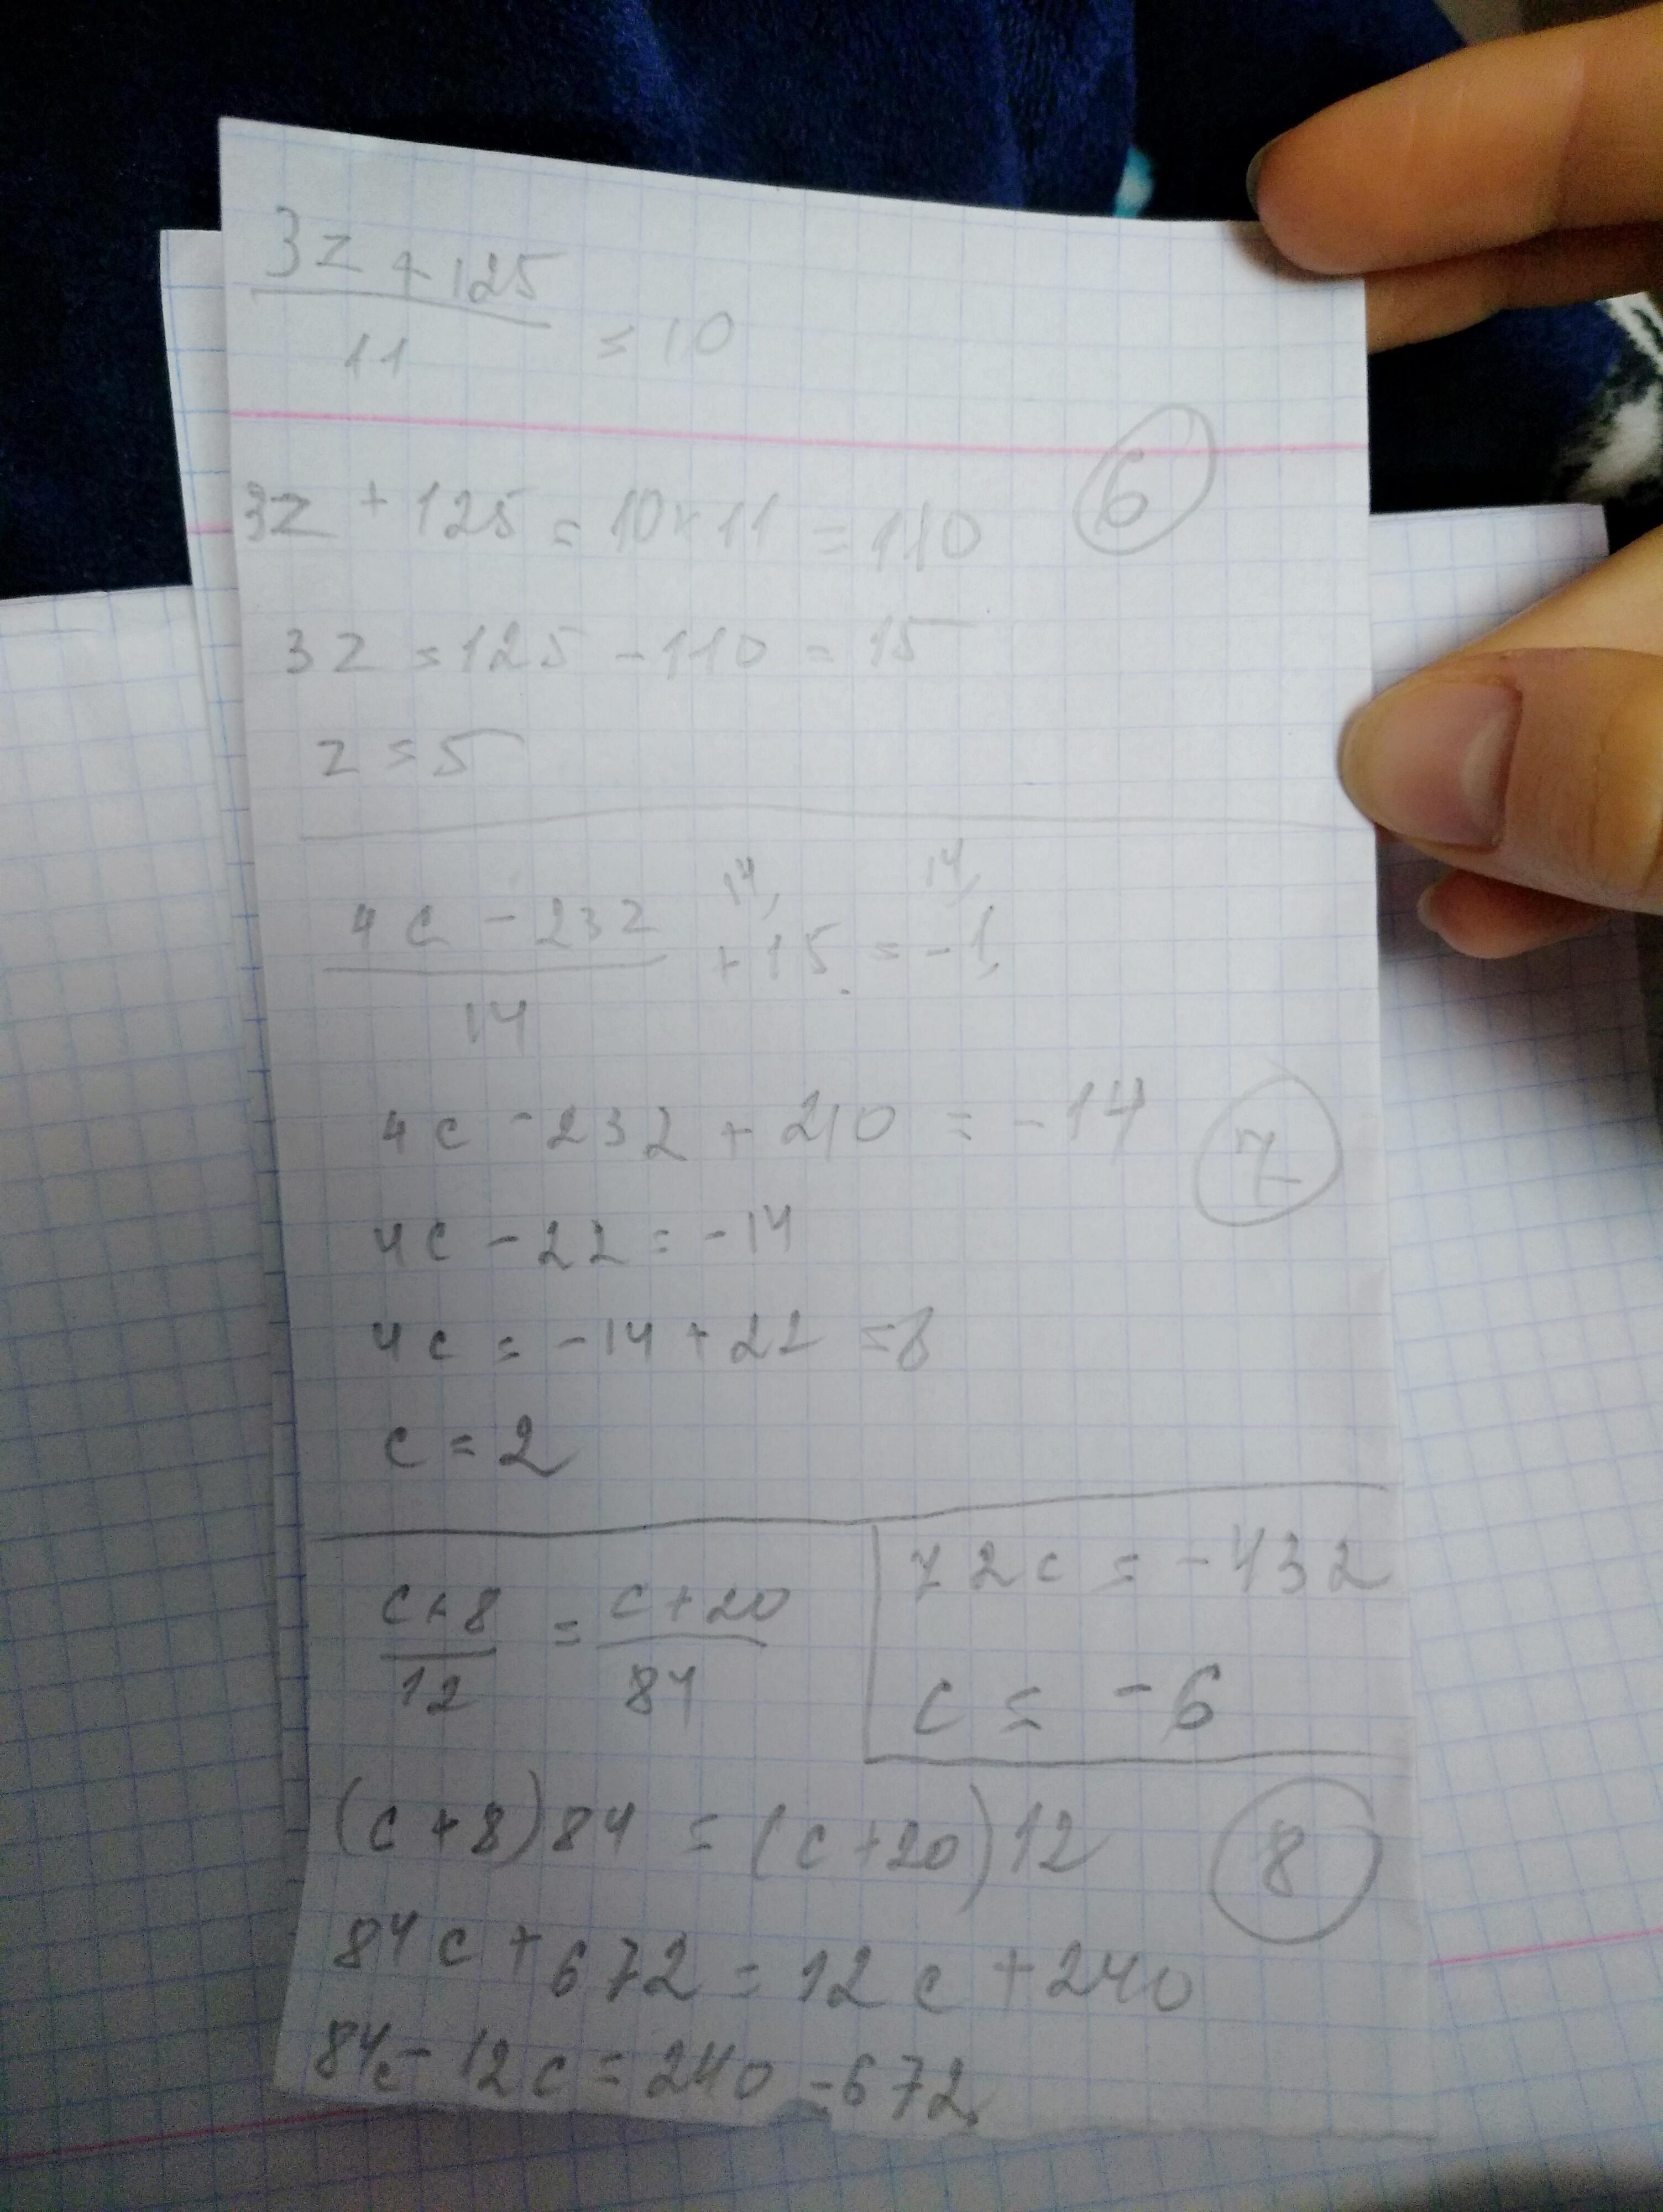 3z + 125
11
= 10
6
3z + 125 = 10 × 11 = 110
3z = 125 - 110 = 15
z = 5
14, 14,
4c - 232 + 15 = -1,
14
4c - 232 + 210 = -14
7
4c - 22 = -14
4c = -14 + 22 = 8
c = 2
c+8 = c+20
12 84
72c = -432
c = -6
(c+8)84 = (c+20)12
8
84c + 672 = 12c + 240
84c - 12c = 240 - 672